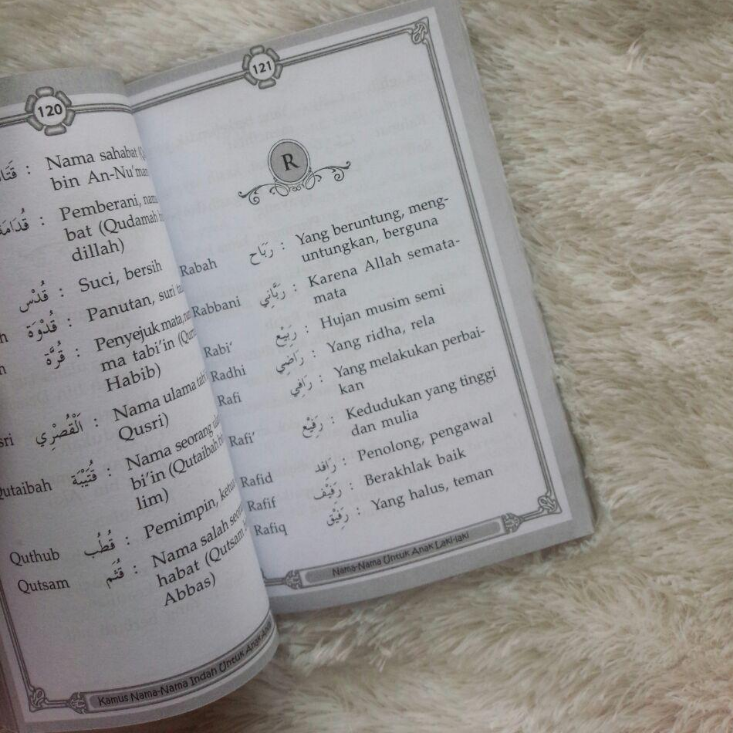 120
: Nama sahabat
bin An-Nu'man
: Pemberani,
bat (Qudamah
dillah)
قُدْس : Suci, bersih
قُدْوَة : Panutan, suri
قُرَّة : Penyejuk mata,
ma tabi'in
Habib)
اَلْقُصْرِي : Nama ulama
Qusri)
Qutaibah قُتَيْبَة : Nama seorang
bi'in (Qutaibah
lim)
Quthub قُطُب : Pemimpin,
Qutsam قُثَم : Nama salah
habat (Qutsam
Abbas)
Kamus Nama-Nama Indah Untuk Anak
121
R
Rabah رَبَاح : Yang beruntung, meng-
untungkan, berguna
Rabbani رَبَّانِي : Karena Allah semata-
mata
Rabi' رَبِيْع : Hujan musim semi
Radhi رَاضِي : Yang ridha, rela
Rafi رَافِي : Yang melakukan perbai-
kan
Rafi' رَفِيْع : Kedudukan yang tinggi
dan mulia
Rafid رَافِد : Penolong, pengawal
Rafif رَفِيْف : Berakhlak baik
Rafiq رَفِيْق : Yang halus, teman
Nama-Nama Untuk Anak Laki-laki